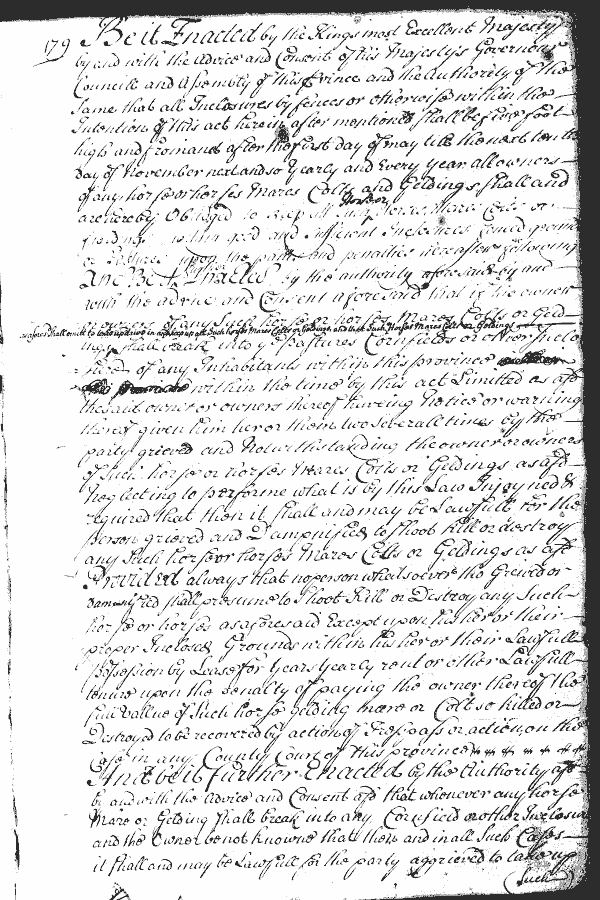 179 Be it Enacted by the Kings most Excellent Majesty
by and with the Advice and Consent of this Majestys Governour
Councill and Assembly of this Province and the Authority of the
same that all Inclosures by fences or otherwise within the
Intention of this act herein after mentiond shall be five foot
high and from and after the first day of may till the next tenth
day of November next and so Yearly and Every year all owners
of any horse or horses Mares Colts and Geldings shall and
are hereby Obliged to keep all such horses Mares Colts or
within good and sufficient Inclosures fenced ground
or Pastures upon the pains and penalties hereafter following
And Be it Enacted by the authority aforesaid by and
with the advice and Consent aforesaid that if the owner
of any such horse or horses Mares Colts or Geld
as afores shall omitt to
ings shall break into of pastures Cornfields or other Inclo
sure of any Inhabitants within this province
within the time by this act Limitted as afsd
the said owner or owners thereof haveing Notice or warning
thereof given him her or them two severall times by the
party grieved and Notwithstanding the owner or owners
of such horse or horses Mares Colts or Geldings as afsd
neglecting to performe what is by this Law Injoyned &
required that then it shall and may be Lawfull for the
person grieved and Dampnified to shoot kill or destroy
any such horse or horses Mares Colts or Geldings as afsd
Provided always that no person whatsoever tho Greived or
Dampnified shall presume to Shoot Kill or Destroy any Such
horse or horses as aforesaid Except upon his her or their
proper Inclosed Grounds within his her or their Lawfull
Possession by Lease for Years Yearly rent or other Lawfull
tenure upon the penalty of paying the owner thereof the
full vallue of such horse gelding mare or Colt so killed or
Destroyed to be recovered by action of Trespass or action on the
Case in any County Court of this province
And be it further Enacted by the Authority afsd
by and with the Advice and Consent afsd that whenever any horse
Mare or Gelding shall break into any Cornfield or other Inclosure
and the Owner be not knowne that then and in all such Cases
it shall and may be Lawfull for the party aggrieved to take up
(Such